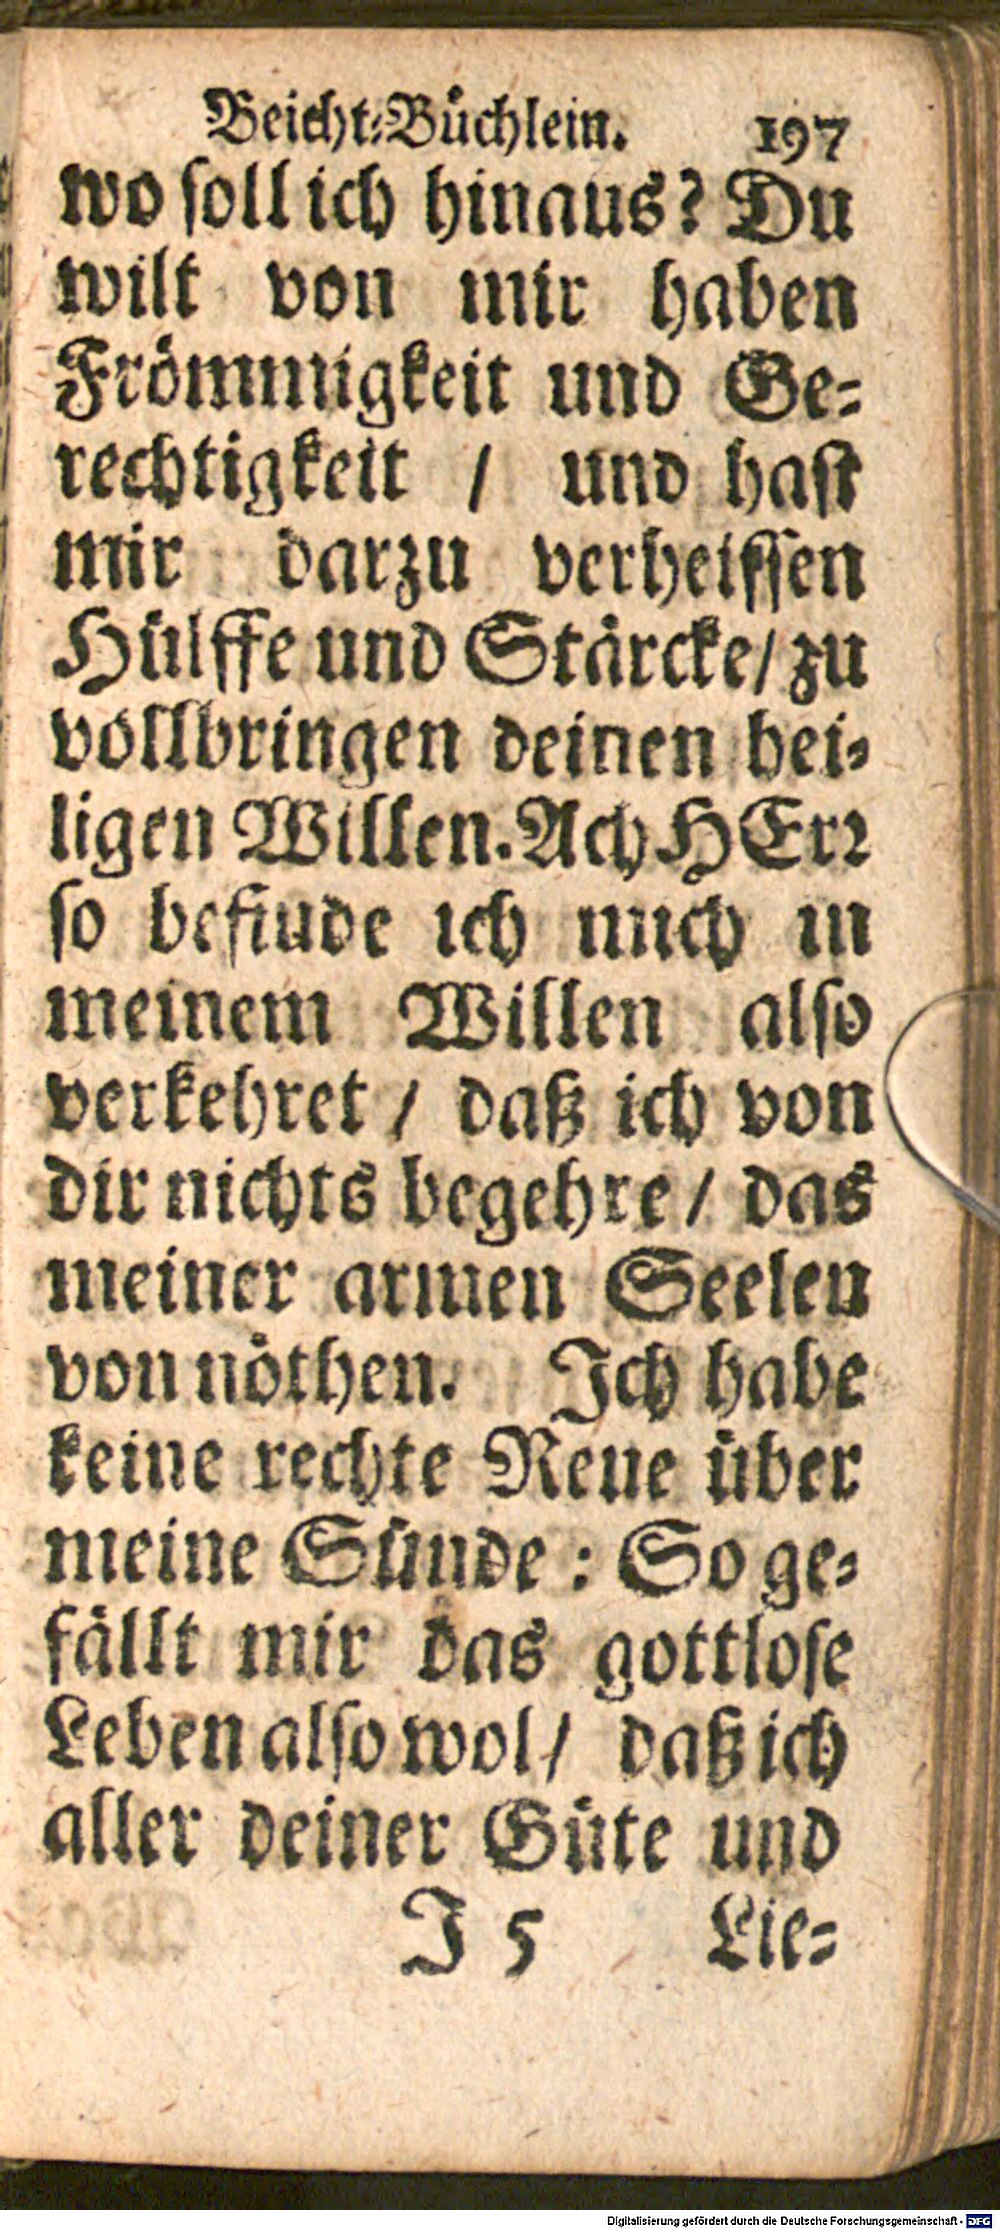 Beicht-Büchlein. 197
wo soll ich hinaus? Du
wilt von mir haben
Frömmigkeit und Ge-
rechtigkeit / und hast
mir darzu verheissen
Hülffe und Stärcke / zu
vollbringen deinen hei-
ligen Willen. Ach HErr
so befinde ich mich in
meinem Willen also
verkehret / daß ich von
dir nichts begehre / das
meiner armen Seelen
von nöthen. Ich habe
keine rechte Reue über
meine Sünde : So ge-
fällt mir das gottlose
Leben also wol / daß ich
aller deiner Güte und
J 5 Lie-
Digitalisierung gefördert durch die Deutsche Forschungsgemeinschaft - DFG